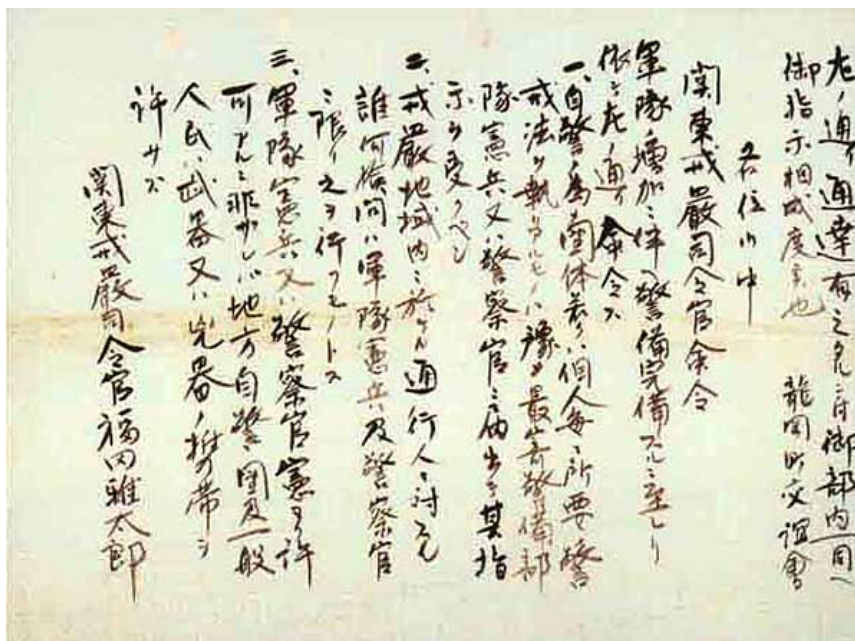 左ノ通リ通達有之候ニ付御部内一同ヘ
御指示相成度候也 龍岡町交誼會
各位御中
関東戒嚴司令官命令
軍隊ノ増加ニ伴ヒ警備完備スルニ至レリ
依テ左ノ通リ命令ス
一、自警ノ為団体若クハ個人毎ニ所要ノ警
戒法ヲ執リタルモノハ豫メ最寄警備部
隊憲兵又ハ警察官ニ届出テ其指
示ヲ受クベシ
二、戒嚴地域内ニ於ケル通行人ニ対スル
誰何検問ハ軍隊憲兵及警察官
ニ限リ之ヲ行フモノトス
三、軍隊憲兵又ハ警察官憲ヨリ許
可アルニ非ザレバ地方自警団及一般
人民ハ武器又ハ兇器ノ携帯ヲ
許サズ
関東戒嚴司令官福田雅太郎